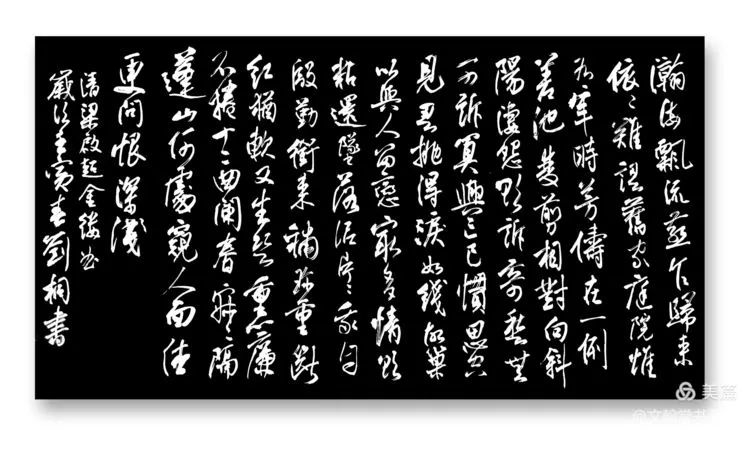 瀚海飄流燕乍歸來
依〻難認舊家庭院惟
有年時芳儔在一例
差池雙剪相對向斜
陽淒怨欲訴奇愁無
可訴算興亡已慣司空
見忍拋得淚如綫故巢
似與人留戀最多情欲
粘還墜落泥片〻我自
殷勤銜來補珍重斷
紅猶軟又生恐重簾
不捲十二曲闌春寂〻隔
蓬山何處窺人面休
更問恨深淺
清梁啟超金縷曲
歲次壬寅春劉桐書
美篇
@文翰堂书